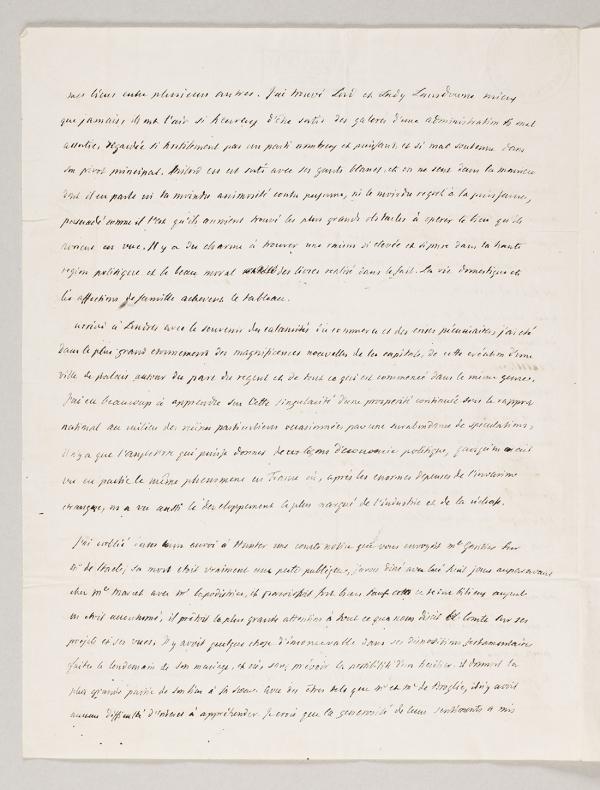 mes liens entre plusieurs autres. J'ai trouvé Lord et Lady Lansdowne mieux
que jamais, ils ont l'air si heureux d'être sortis des galeres d'une administration si mal
assortie, regardée si hostilement par un parti nombreux et puissant et si mal soutenue dans
son pivot principal. Milord en est sorti avec ses gants blancs, et on ne sent dans la maniere
dont il en parle ni la moindre animosité contre personne, ni le moindre regret à la puissance,
persuadé comme il l'est qu'ils auroient trouvé les plus grands obstacles à opérer le bien qu'ils
avoient en vue. Il y a du charme à trouver une raison si elevée et si pure dans la haute
region politique et le beau moral des livres realisé dans le fait. La vie domestique et
les affections de famille achevent le tableau.
arrivé à Londres avec le souvenir des calamités du commerce et des crises pécuniaires, j'ai été
dans le plus grand étonnement des magnificences nouvelles de la capitale, de cette création d'une
ville de palais autour du parc du regent et de tout ce qui est commencé dans le même genre.
J'ai eu beaucoup à apprendre sur cette singularité d'une prosperité continuée sous le rapport
national au milieu des ruines particulieres occasionnées par une surabondance de spéculations,
il n'y a que l'angleterre qui puisse donner de ces leçons d'économie politique, quoiqu'on ait
vu en partie le même phenomene en France où, après les enormes dépenses de l'invasion
etrangere, on a vu aussi le developpement le plus marqué de l'industrie et de la richesse.
J'ai oublié dans mon envoi à Hunter une courte notice que vous envoyoit Mr Gautier sur
Mr de Stael; sa mort étoit vraiment une perte publique, j'avois diné avec lui huit jours auparavant
chez Me Marcet avec Mr Capodistrias, et
en étoit accoutumé, il prêtoit la plus grande attention à tout ce que nous disoit le Comte sur ses
projets et ses vues. Il y avoit quelque chose d'inconcevable dans ses dispositions testamentaires
faites le lendemain de son mariage, et sans prévoir la possibilité d'un heritier. Il donnoit la
plus grande partie de son bien à sa soeur. Avec des êtres tels que Mr et Me de Broglie, il n'y avoit
aucune difficulté d'interet à appréhender. Je crois que la generosité de leurs sentiments a mis